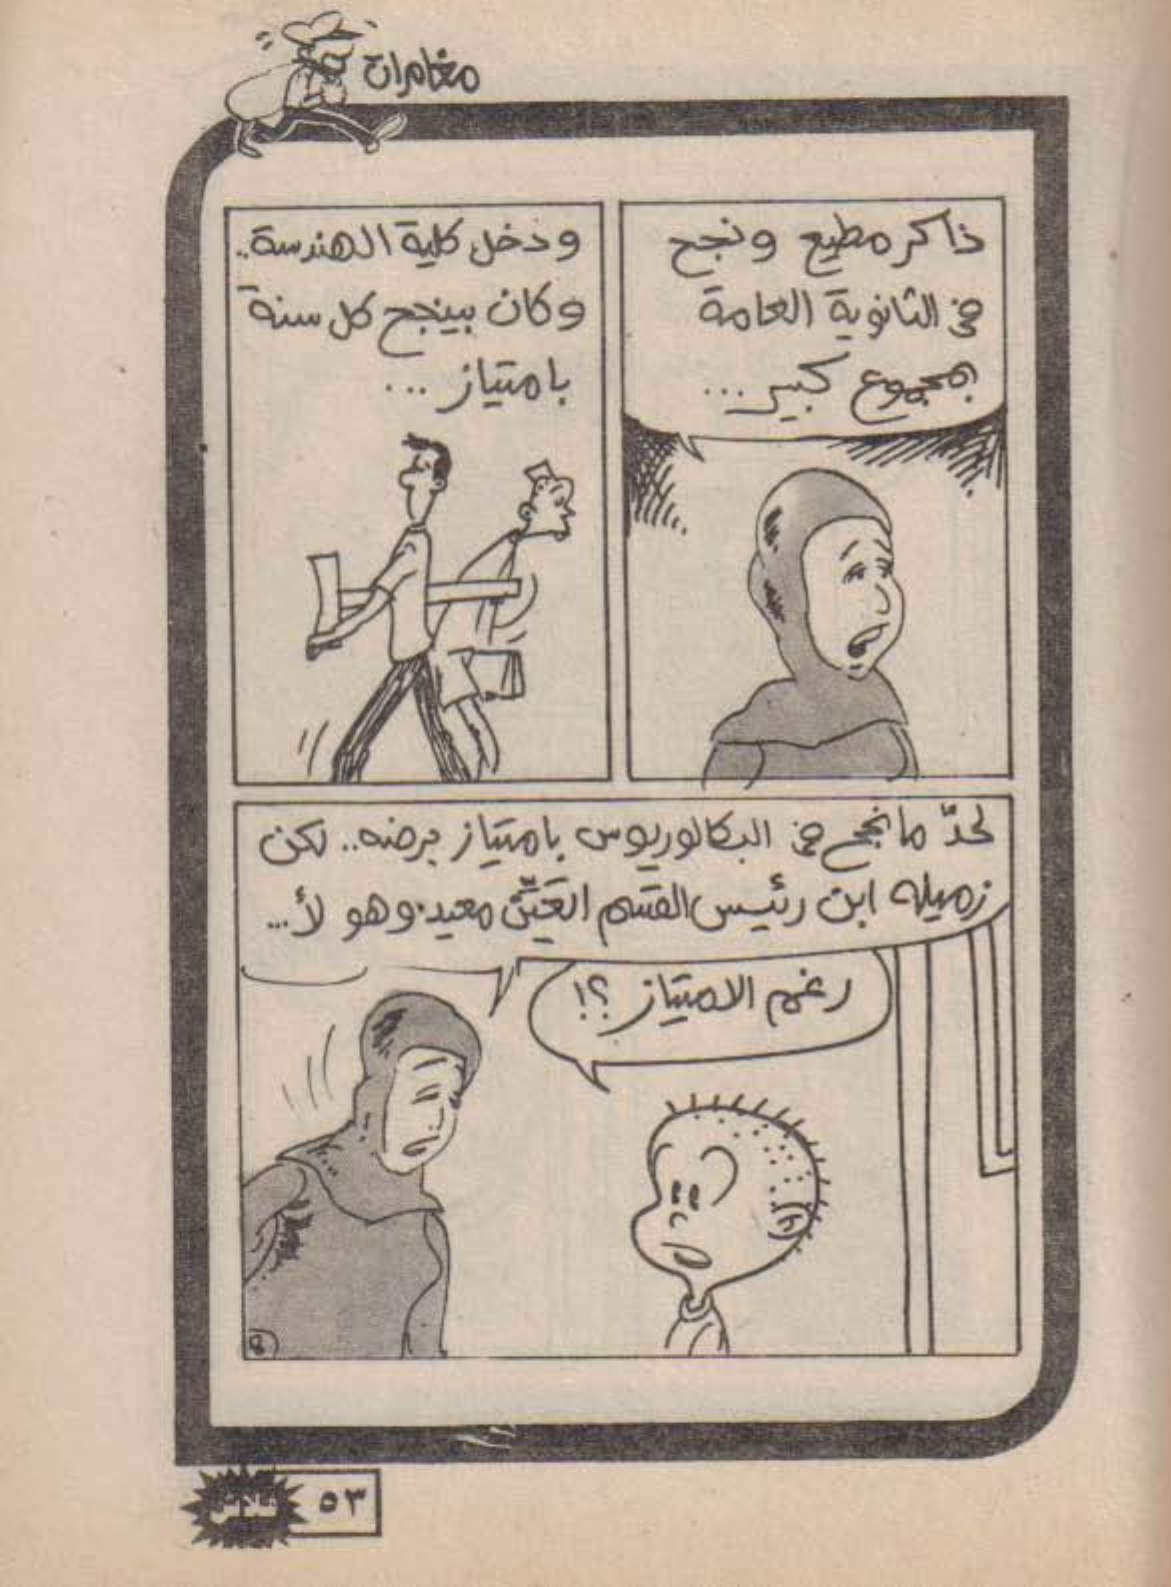 مغامرات
ذاكر مطيع ونجح
فى الثانوية العامة
بمجموع كبير...
ودخل كلية الهندسة..
وكان بينجح كل سنة
بامتياز ...
لحدّ ما نجح فى البكالوريوس بامتياز برضه.. لكن
زميله ابن رئيس القسم اتعيّن معيد.. وهو لأ...
رغم الامتياز ؟!
8
٥٣
فلاش